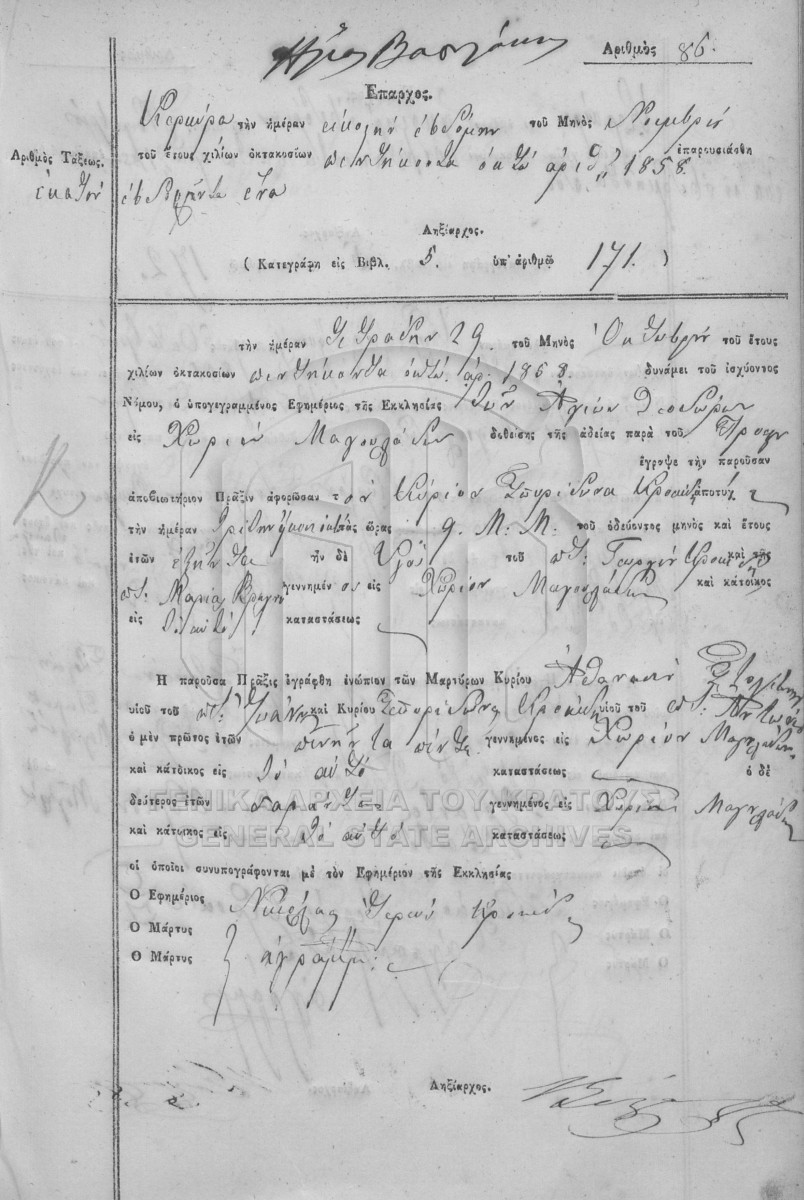 Ηλίας Βασιλάκης Ἀριθμὸς 86.
Ἔπαρχος.
Κερκύρα τὴν ἡμέραν εἰκοστὴν ἑβδόμην τοῦ Μηνὸς Νοεμβρίου
τοῦ ἔτους χιλίων ὀκτακοσίων πεντήκοντα ὀκτὼ ἀριθ. 1858 ἐπαρουσιάσθη
Ἀριθμὸς Τάξεως.
ἑκατὸν
ἑβδομῆντα ἕνα
Ληξίαρχος.
( Κατεγράφη εἰς Βιβλ. 5. ὑπ' ἀριθμῷ 171. )
τὴν ἡμέραν Τετράδην 29. τοῦ Μηνὸς Ὀκτωβρίου τοῦ ἔτους
χιλίων ὀκτακοσίων πεντήκοντα ὀκτὼ ἀρ. 1858. δυνάμει τοῦ ἰσχύοντος
Νόμου, ὁ ὑπογεγραμμένος Ἐφημέριος τῆς Ἐκκλησίας τῶν Ἁγίων Θεοδώρων
εἰς Χωρίον Μαγουλάδων δοθείσης τῆς ἀδείας παρὰ τοῦ
ἔγραψε τὴν παροῦσαν
ἀποβιωτήριον Πρᾶξιν ἀφορῶσαν τὸν Κύριον Σπυρίδωνα
τὴν ἡμέραν Τρίτην τὰς ὥρας 9. Μ: Μ. τοῦ ὁδεύοντος μηνὸς καὶ ἔτους
ἐτῶν ἑξῆντα ἦν δὲ Υἱὸς τοῦ ποτ: Γεωργίου καὶ τῆς
ποτ: Μαρίας γεννημένος εἰς Χωρίον Μαγουλάδων καὶ κάτοικος
εἰς τὸ αὐτὸ καταστάσεως
Ἡ παροῦσα Πρᾶξις ἐγράφθη ἐνώπιον τῶν Μαρτύρων Κυρίου Ἀθανασίου
υἱοῦ τοῦ ποτ: Ἰωάννη καὶ Κυρίου Σπυρίδωνος υἱοῦ τοῦ ποτ: Ἀντωνίου
ὁ μὲν πρῶτος ἐτῶν πενῆντα πέντε γεννημένος εἰς Χωρίον Μαγουλάδων
καὶ κάτοικος εἰς τὸ αὐτὸ καταστάσεως ὁ δὲ
δεύτερος ἐτῶν σαράντα γεννημένος εἰς Χωρίον Μαγουλάδων
καὶ κάτοικος εἰς τὸ αὐτὸ καταστάσεως
οἱ ὁποῖοι συνυπογράφονται μὲ τὸν Ἐφημέριον τῆς Ἐκκλησίας
Ὁ Ἐφημέριος Νικόλαος Ἱερεὺς
Ὁ Μάρτυς
Ὁ Μάρτυς ἀγράμμ:
Ληξίαρχος.
ΓΕΝΙΚΑ ΑΡΧΕΙΑ ΤΟΥ ΚΡΑΤΟΥΣ
GENERAL STATE ARCHIVES